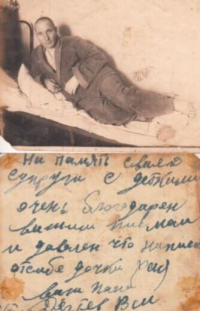 На память своей
супруги с детками
очень благодарен
вашим письмам
и доволен что написа
отсебе дочки
ваш папа